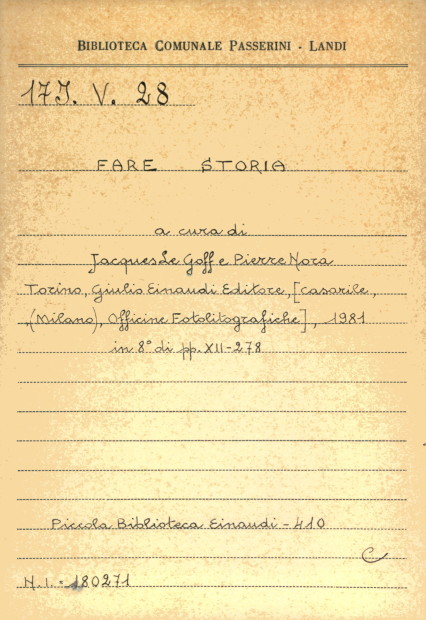 BIBLIOTECA COMUNALE PASSERINI - LANDI
17J. V. 28
FARE STORIA
a cura di
Jacques Le Goff e Pierre Nora
Torino, Giulio Einaudi Editore, [Casarile,
(Milano), Officine Fotolitografiche], 1981
in 8° di pp. XII-278
Piccola Biblioteca Einaudi - 410
C
N.I. = 180271